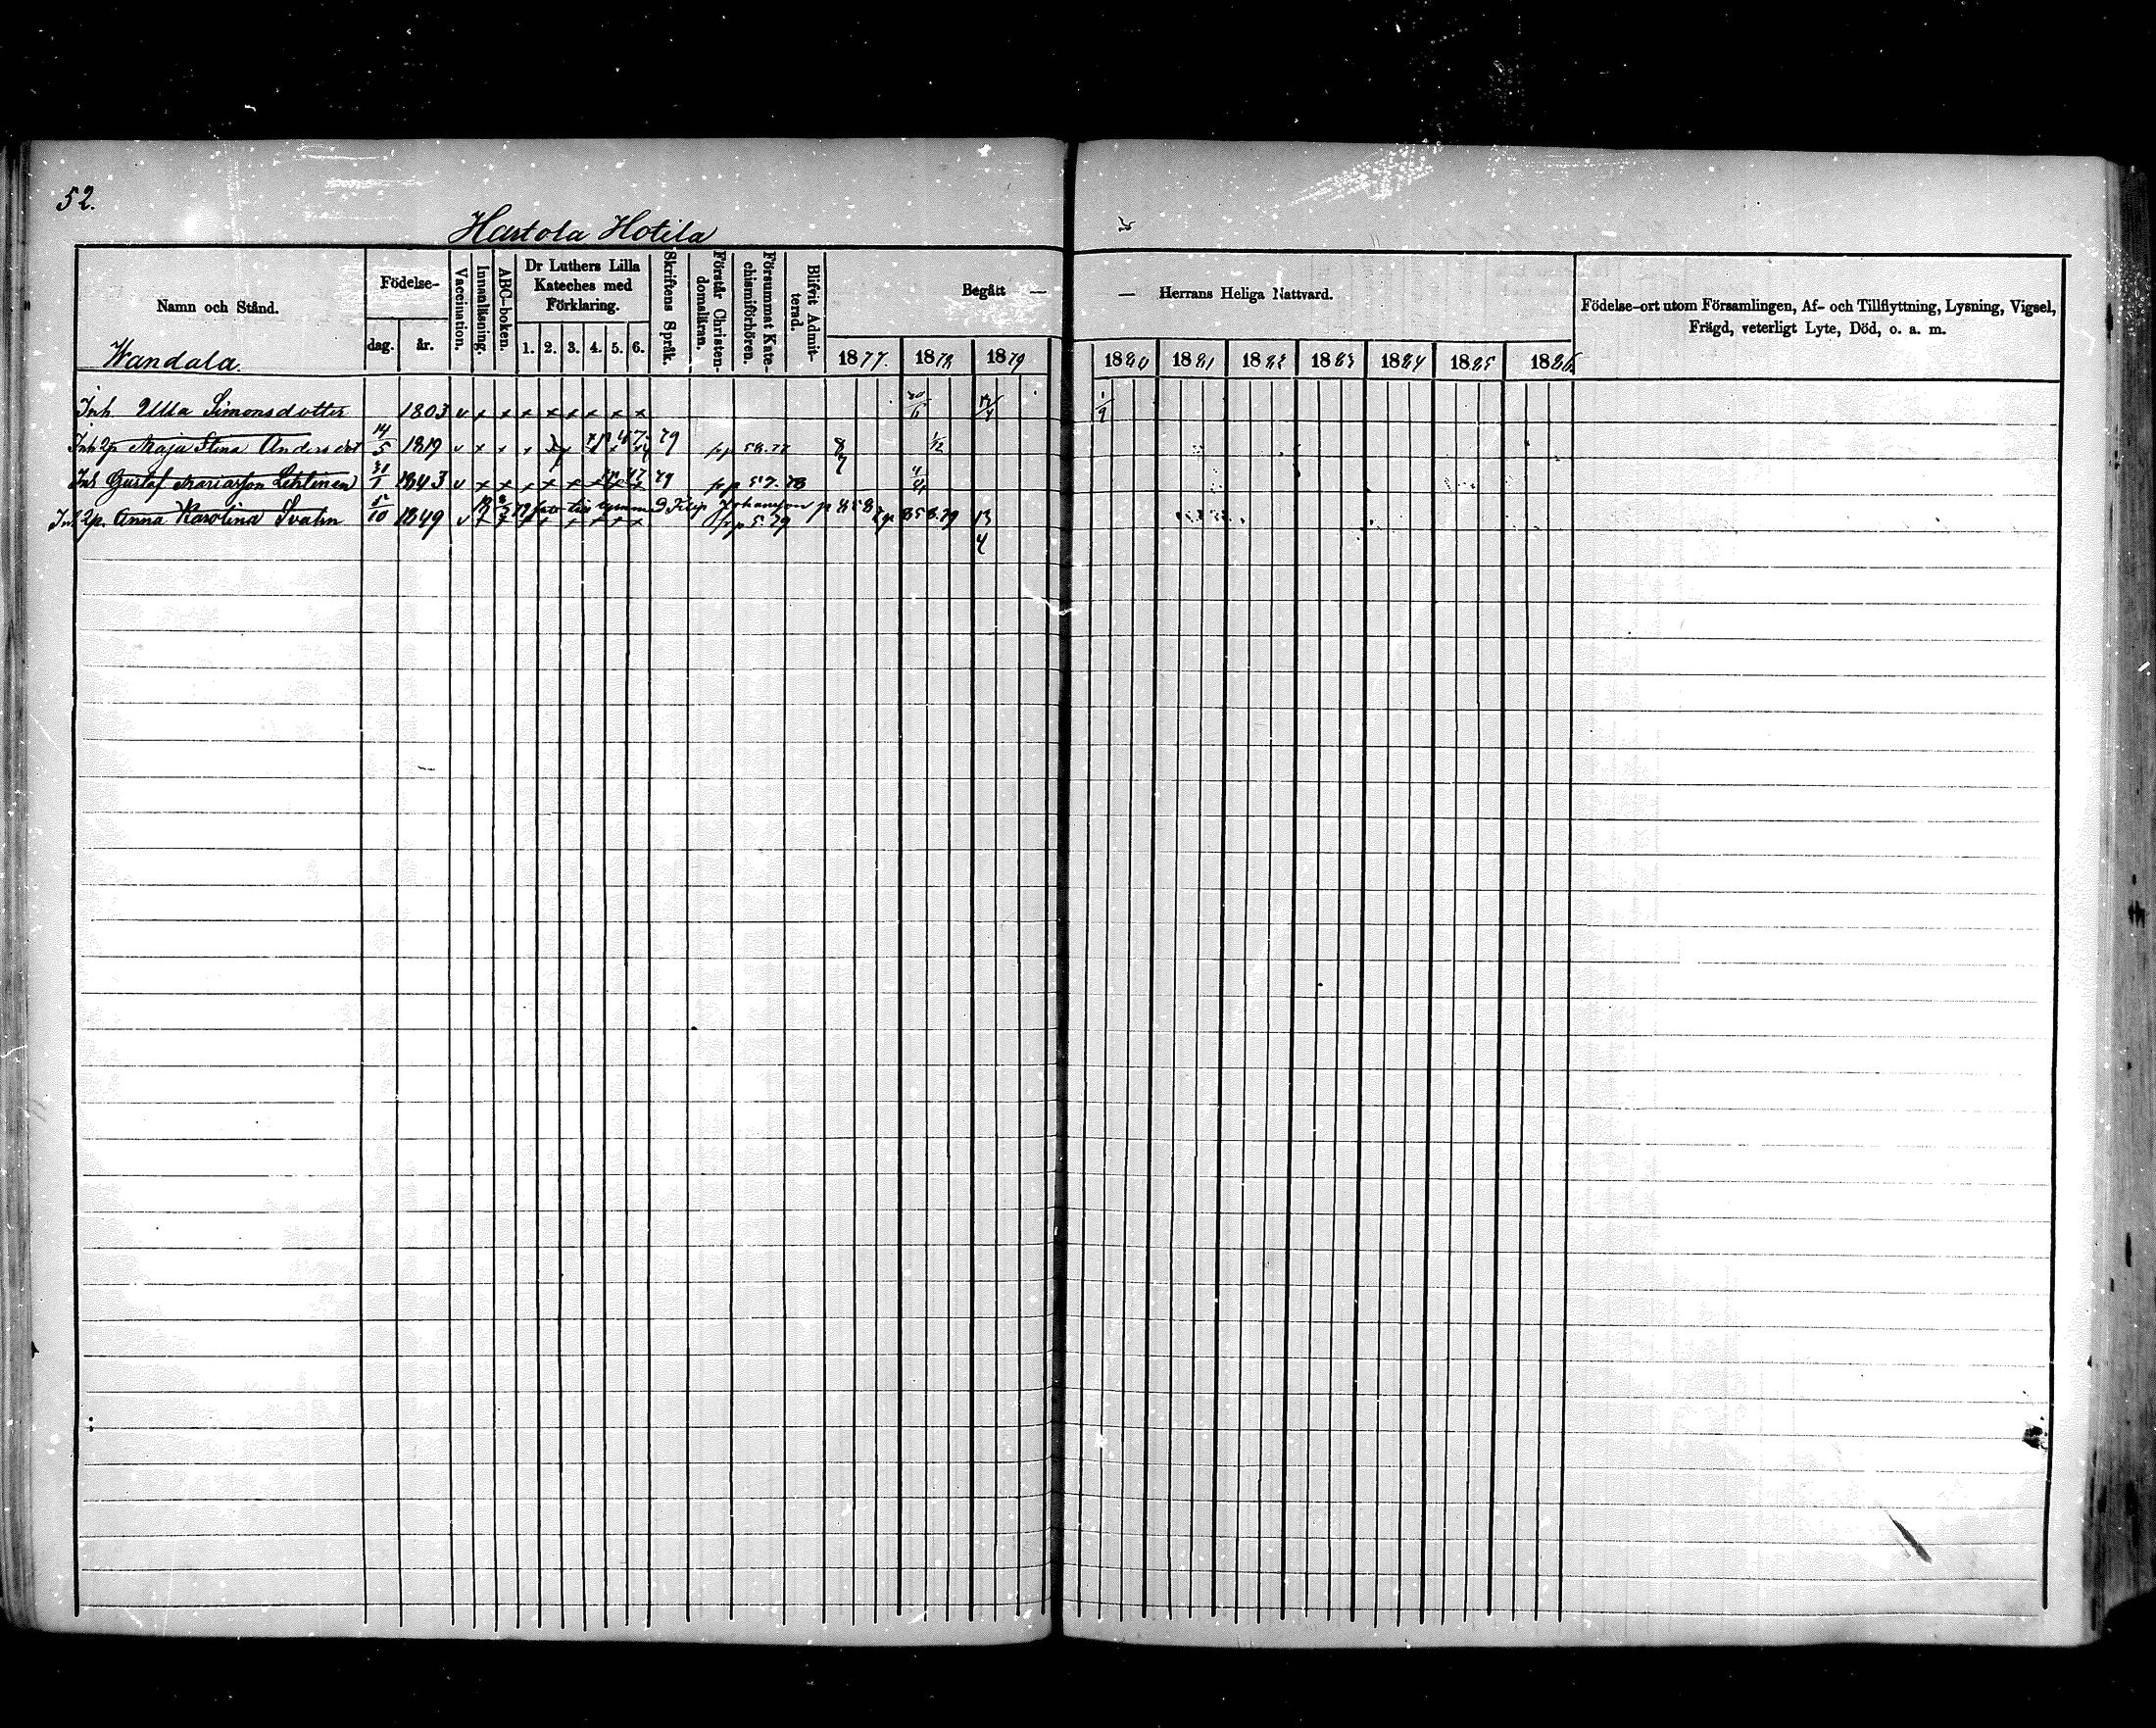 52.
Hartola Hotila
Namn och Stånd.
Wandala.
Födelse-
dag.
år.
Vaccination.
Innanläsning.
ABC-boken.
Dr Luthers Lilla
Kateches med
Förklaring.
1. 2. 3. 4. 5. 6.
Skriftens Språk.
Förstår Christen-
domsläran.
Försummat Kate-
chismiförhören.
Blifvit Admit-
terad.
Begått —
— Herrans Heliga Nattvard.
1877. 1878 1879
1880 1881 1882 1883 1884 1885 1886
Födelse-ort utom Församlingen, Af- och Tillflyttning, Lysning, Vigsel,
Frägd, veterligt Lyte, Död, o. a. m.
Inh Ulla Simonsdotter 1803 v x x x x x x x x
Inh Maja Stina Andersdot 14/5 1819 v x 79 fr p 58.77 1/12
Inh Gustaf Lehtinen 31/1 1843 v x x x x x x 79 fr p 57. 78
Anna Karolina Svahn 5/10 1849 v Johansson p 858 fr p 5 79 13/4